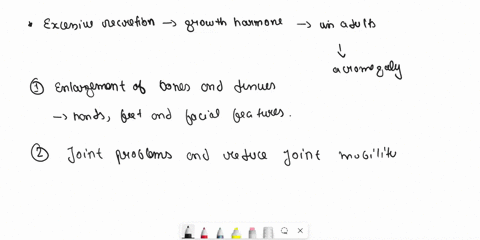 • Excessive secretion → growth hormone → in adults
↓
acromegaly
① Enlargement of bones and tissues
→ hands, feet and facial features.
② Joint problems and reduce joint mobilite